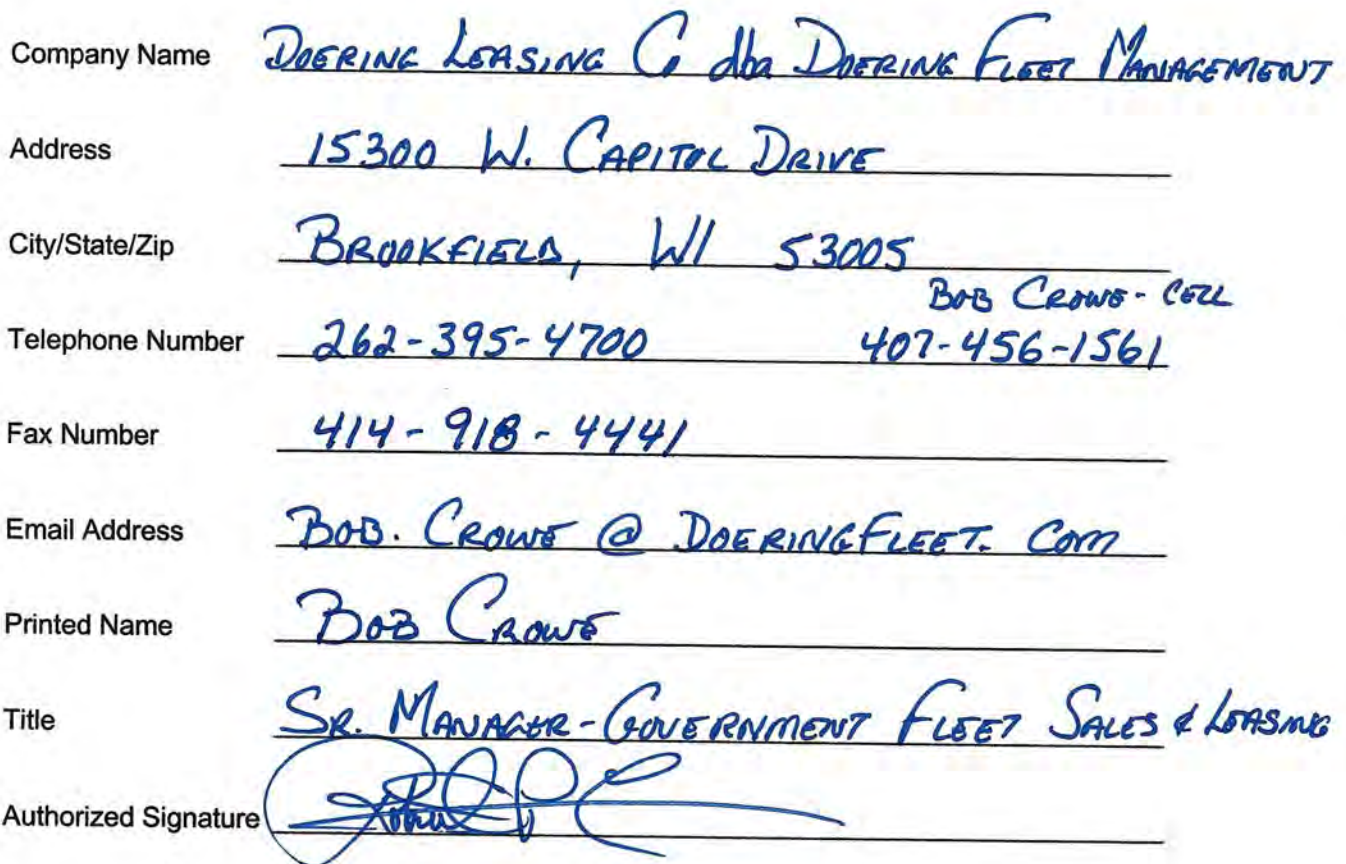 Company Name DOERING LEASING Co dba DOERING FLEET MANAGEMENT
Address 15300 W. CAPITOL DRIVE
City/State/Zip BROOKFIELD, WI 53005
BOB CROWE - CELL
Telephone Number 262-395-4700 407-456-1561
Fax Number 414-918-4441
Email Address BOB.CROWE@DOERINGFLEET.COM
Printed Name BOB CROWE
Title SR. MANAGER-GOVERNMENT FLEET SALES & LEASING
Authorized Signature